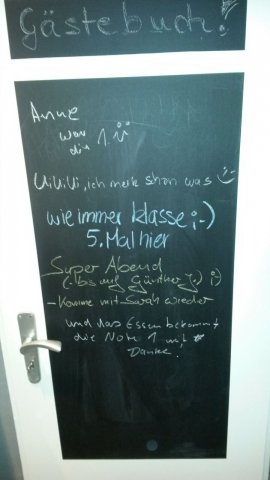 Gästebuch!
Anne
war
die 1. ü
UiUiUi, ich merke schon was :-)
wie immer klasse ;-)
5. Mal hier
Super Abend
(bis auf Günther J.) ;)
- Komme mit Sarah wieder
und das Essen bekommt
die Note 1 mit *
Danke.